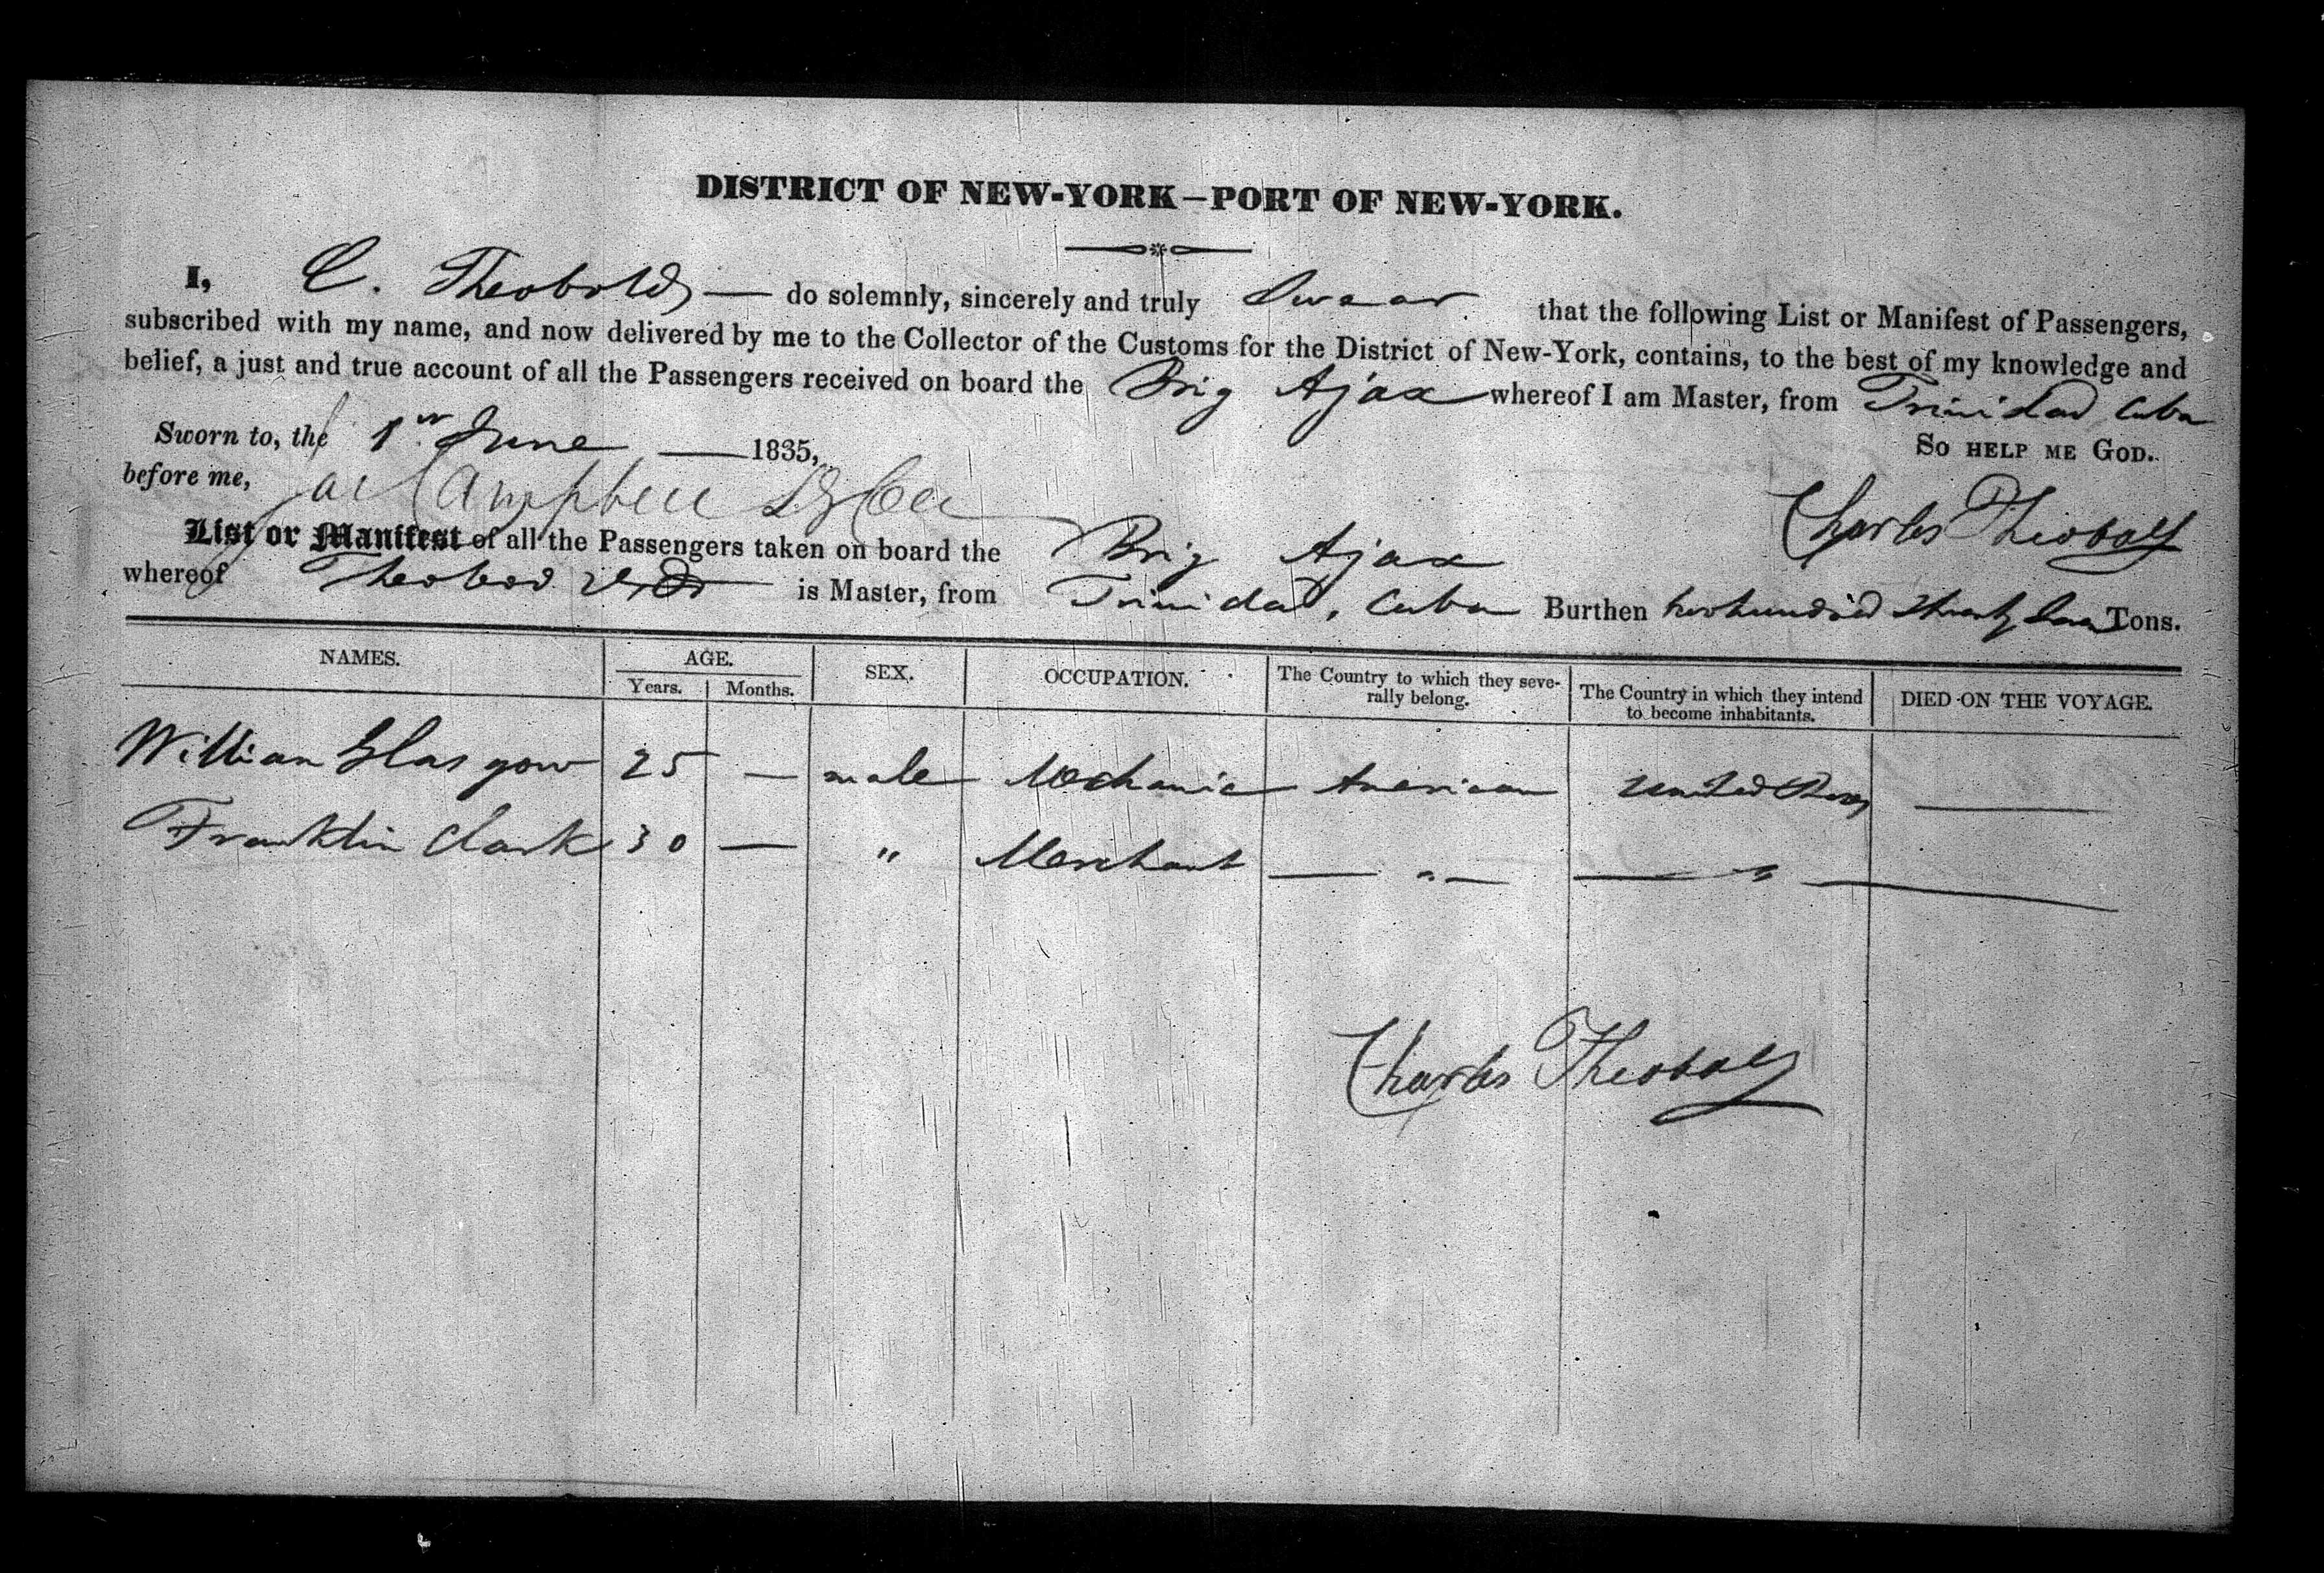 DISTRICT OF NEW-YORK—PORT OF NEW-YORK.
I, C. Theobold — do solemnly, sincerely and truly Swear that the following List or Manifest of Passengers,
subscribed with my name, and now delivered by me to the Collector of the Customs for the District of New-York, contains, to the best of my knowledge and
belief, a just and true account of all the Passengers received on board the Brig Ajax whereof I am Master, from Trinidad Cuba
Sworn to, the 1st June — 1835, So HELP ME GOD.
before me, Campbell
Charles Theobald
List or Manifest of all the Passengers taken on board the Brig Ajax
whereof is Master, from Trinidad, Cuba Burthen two hundred Tons.
NAMES. AGE. SEX. OCCUPATION. The Country to which they seve- The Country in which they intend DIED ON THE VOYAGE.
Years. Months. rally belong. to become inhabitants.
William Glasgow 25 — male Mechanic American United States —
Franklin Clark 30 — " Merchant — " — — " —
Charles Theobald